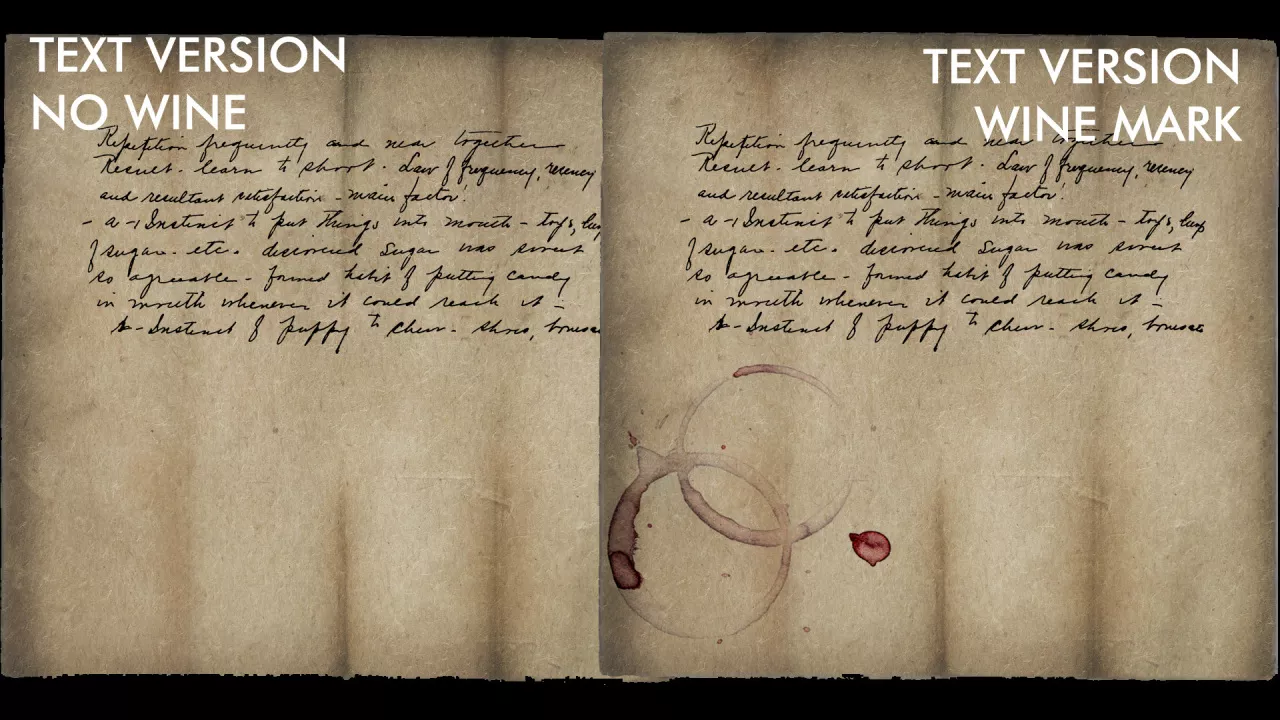 TEXT VERSION
NO WINE
Repetition frequently and near together
Result - learn to shoot. Law of frequency, recency
and resultant satisfaction - main factor!
- a - Instinct to put things into mouth - toys,
of sugar. etc. discovered sugar was sweet
so agreeable - formed habit of putting candy
in mouth whenever it could reach it -
b - Instinct of puppy to chew - shoes, bones
TEXT VERSION
WINE MARK
Repetition frequently and near together
Result - learn to shoot. Law of frequency, recency
and resultant satisfaction - main factor!
- a - Instinct to put things into mouth - toys, lump
of sugar. etc. discovered sugar was sweet
so agreeable - formed habit of putting candy
in mouth whenever it could reach it -
b - Instinct of puppy to chew - shoes, bones